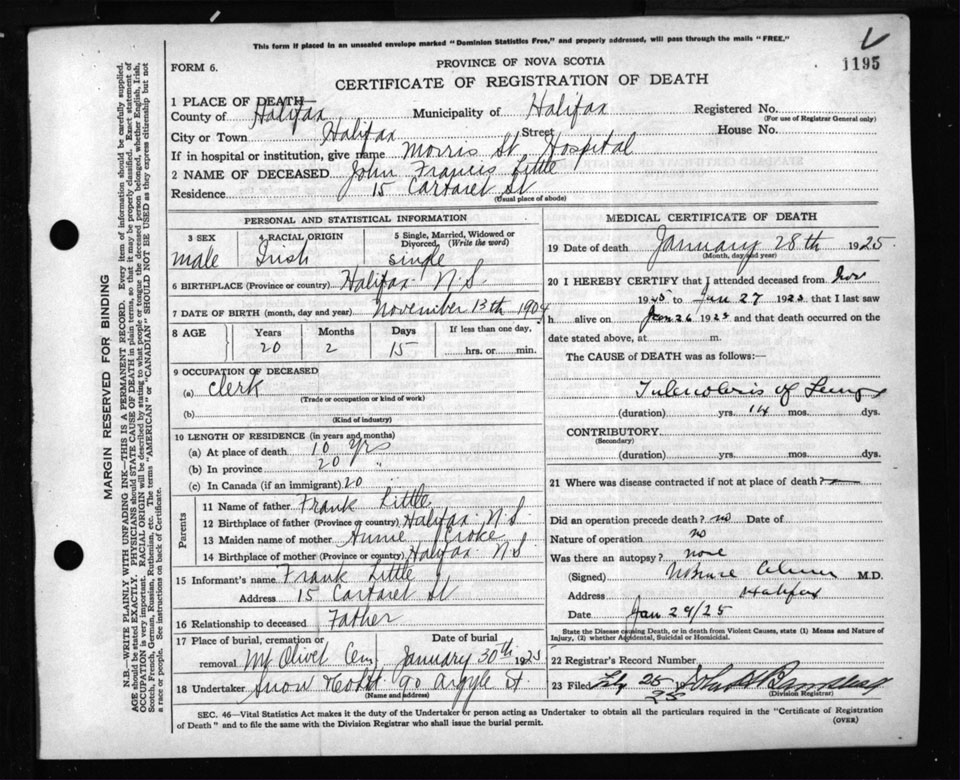 This form if placed in an unsealed envelope marked "Dominion Statistics Free," and properly addressed, will pass through the mails "FREE."
1195
FORM 6.
PROVINCE OF NOVA SCOTIA
CERTIFICATE OF REGISTRATION OF DEATH
1 PLACE OF DEATH—
County of Halifax Municipality of Halifax Registered No.
(For use of Registrar General only)
City or Town Halifax Street House No.
If in hospital or institution, give name Morris St Hospital
2 NAME OF DECEASED John Francis Little
Residence 15 Cartaret St
(Usual place of abode)
PERSONAL AND STATISTICAL INFORMATION
3 SEX 4 RACIAL ORIGIN 5 Single, Married, Widowed or Divorced, (Write the word)
male Irish single
6 BIRTHPLACE (Province or country) Halifax N.S.
7 DATE OF BIRTH (month, day and year) November 13th 1904
8 AGE Years Months Days If less than one day,
20 2 15 hrs. or min.
9 OCCUPATION OF DECEASED
(a) Clerk
(Trade or occupation or kind of work)
(b)
(Kind of industry)
10 LENGTH OF RESIDENCE (in years and months)
(a) At place of death 10 yrs
(b) In province 20 "
(c) In Canada (if an immigrant) 20
Parents
11 Name of father Frank Little
12 Birthplace of father (Province or country) Halifax N.S
13 Maiden name of mother Annie Croke
14 Birthplace of mother (Province or country) Halifax N.S.
15 Informant's name Frank Little
Address 15 Cartaret St
16 Relationship to deceased Father
17 Place of burial, cremation or removal Date of burial
Mt Olivet Cem January 30th 1925
18 Undertaker Snow 90 Argyle St.
(Name and address)
MEDICAL CERTIFICATE OF DEATH
19 Date of death January 28th 1925
(Month, day and year)
20 I HEREBY CERTIFY that I attended deceased from Nov
19 to Jan 27 1925 that I last saw
h alive on Jan 26 1925 and that death occurred on the
date stated above, at m.
The CAUSE of DEATH was as follows:—
Tuberculosis of Lungs
(duration) yrs. 14 mos. dys.
CONTRIBUTORY
(Secondary)
(duration) yrs. mos. dys.
21 Where was disease contracted if not at place of death?
Did an operation precede death? no Date of
Nature of operation no
Was there an autopsy? none
(Signed) M.D.
Address Halifax
Date Jan 29/25
State the Disease causing Death, or in death from Violent Causes, state (1) Means and Nature of
Injury, (2) whether Accidental, Suicidal or Homicidal.
22 Registrar's Record Number
23 Filed 19
(Division Registrar)
SEC. 46—Vital Statistics Act makes it the duty of the Undertaker or person acting as Undertaker to obtain all the particulars required in the "Certificate of Registration
of Death" and to file the same with the Division Registrar who shall issue the burial permit.
(OVER)
MARGIN RESERVED FOR BINDING
N.B.—WRITE PLAINLY WITH UNFADING INK—THIS IS A PERMANENT RECORD. Every item of information should be carefully supplied.
AGE should be stated EXACTLY. PHYSICIANS should STATE CAUSE OF DEATH in plain terms, so that it may be properly classified. Exact statement of
OCCUPATION is very important. RACIAL ORIGIN will be described by stating to what people or tongue the deceased person belonged, whether English, Irish,
Scotch, French, German, Russian, Ruthenian, etc. The terms "AMERICAN" or "CANADIAN" SHOULD NOT BE USED as they express citizenship but not
a race or people. See instructions on back of Certificate.